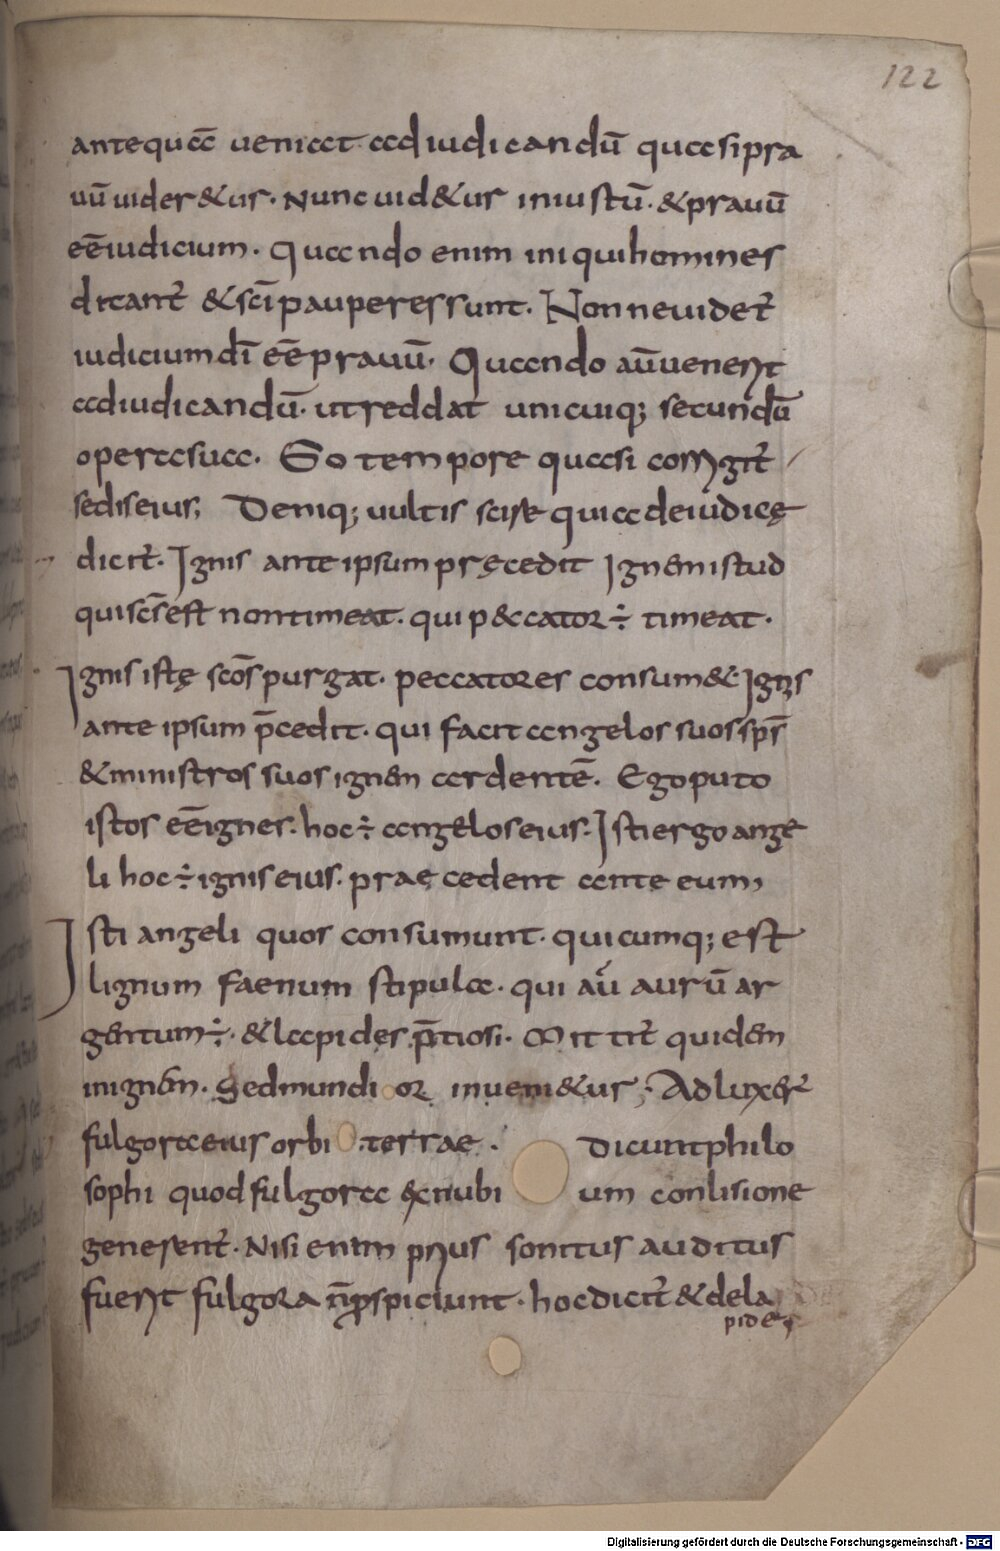 122
antequā ueniat ad iudicandū quasi pra
uū uider&ur. Nunc uid&ur iniustū. &prauū
eēiudicium. Quando enim iniquihomines
dicant̄ &sc̄ipauperessunt. Nonneuidet̄
iudiciumdī eēprauū. Quando aūuenerit
adiudicandū. utreddat unicuiq; secundū
operasua. Eo tempore quasi corrigit̄
sediseius; Deniq; uultis scire quia deiudicę
dicit̄. Ignis ante ipsum pręcedit Ignemistud
quisc̄sest nontimeat. qui p&cator ÷ timeat.
Ignis istę scōs purgat. peccatores consum&. Ignis
ante ipsum p̄cedit. qui facit angelos suos sps̄
&ministros suos ignem ardentē. Ego puto
istos eēignes. hoc ÷ angelos eius. Isti ergo ange
li hoc ÷ ignis eius. praecedent ante eum,
Isti angeli quos consumunt. quicumq; est
lignum faenum stipula. qui aū aurū ar
gentum ÷. &lapides p̄tiosi. Mittit̄ quidem
inignem. Sedmundior inueni&ur. Adluxer̄
fulgora eius orbi terrae. Dicunt philo
sophi quod fulgora exnubi um conlisione
generent̄. Nisi enim prius sonitus auditus
fuerit fulgora n̄ p̄spiciunt. hoc dicit̄ &dela
pides
Digitalisierung gefördert durch die Deutsche Forschungsgemeinschaft - DFG